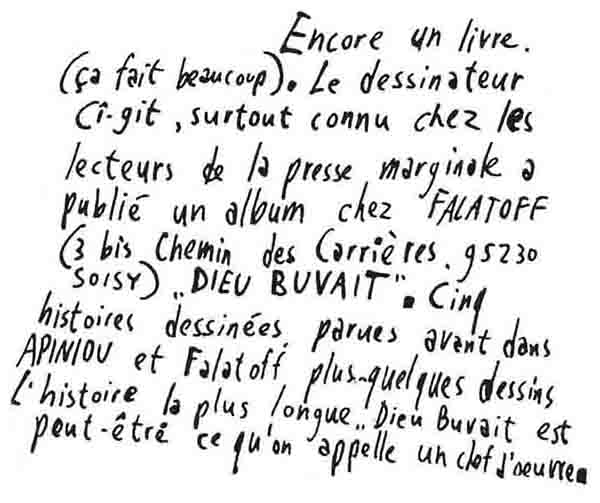 Encore un livre.
(ça fait beaucoup). Le dessinateur
Cî-gît, surtout connu chez les
lecteurs de la presse marginale a
publié un album chez FALATOFF
(3 bis Chemin des Carrières. 95230
SOISY) „DIEU BUVAIT". Cinq
histoires dessinées parues avant dans
APINIOU et Falatoff plus-quelques dessins
L'histoire la plus longue „Dieu Buvait est
peut-être ce qu'on appelle un clef d'oeuvre.